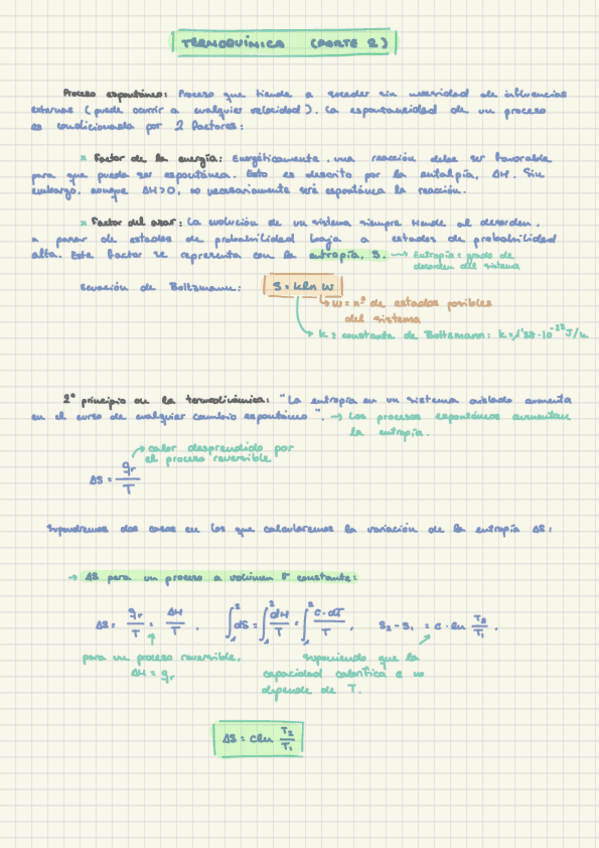 TERMOQUÍMICA (PARTE 2)
Proceso espontáneo: Proceso que tiende a suceder sin necesidad de influencias
externas (puede ocurrir a cualquier velocidad). La espontaneidad de un proceso
es condicionada por 2 factores:
* Factor de la energía: Energéticamente, una reacción debe ser favorable
para que pueda ser espontánea. Esto es descrito por la entalpía, ΔH. Sin
embargo, aunque ΔH>0, no necesariamente será espontánea la reacción.
* Factor del azar: La evolución de un sistema siempre tiende al desorden,
a pasar de estados de probabilidad baja a estados de probabilidad
alta. Este factor se representa con la entropía, S. → Entropía = grado de
desorden del sistema
Ecuación de Boltzmann: S = k ln W
→ W = nº de estados posibles
del sistema
→ k = constante de Boltzmann: k = 1'38 · 10⁻²³ J/K
2º principio de la termodinámica: "La entropía en un sistema aislado aumenta
en el curso de cualquier cambio espontáneo". → Los procesos espontáneos aumentan
la entropía.
→ calor desprendido por
el proceso reversible
ΔS = qr/T
Supondremos dos casos en los que calcularemos la variación de la entropía ΔS:
→ ΔS para un proceso a volumen P constante:
ΔS = qr/T = ΔH/T . ∫₁² dS = ∫₁² dH/T = ∫₁² C·dT/T . S₂ - S₁ = C · ln T₂/T₁ .
para un proceso reversible, suponiendo que la
ΔH = qr capacidad calorífica c no
depende de T.
ΔS = C ln T₂/T₁